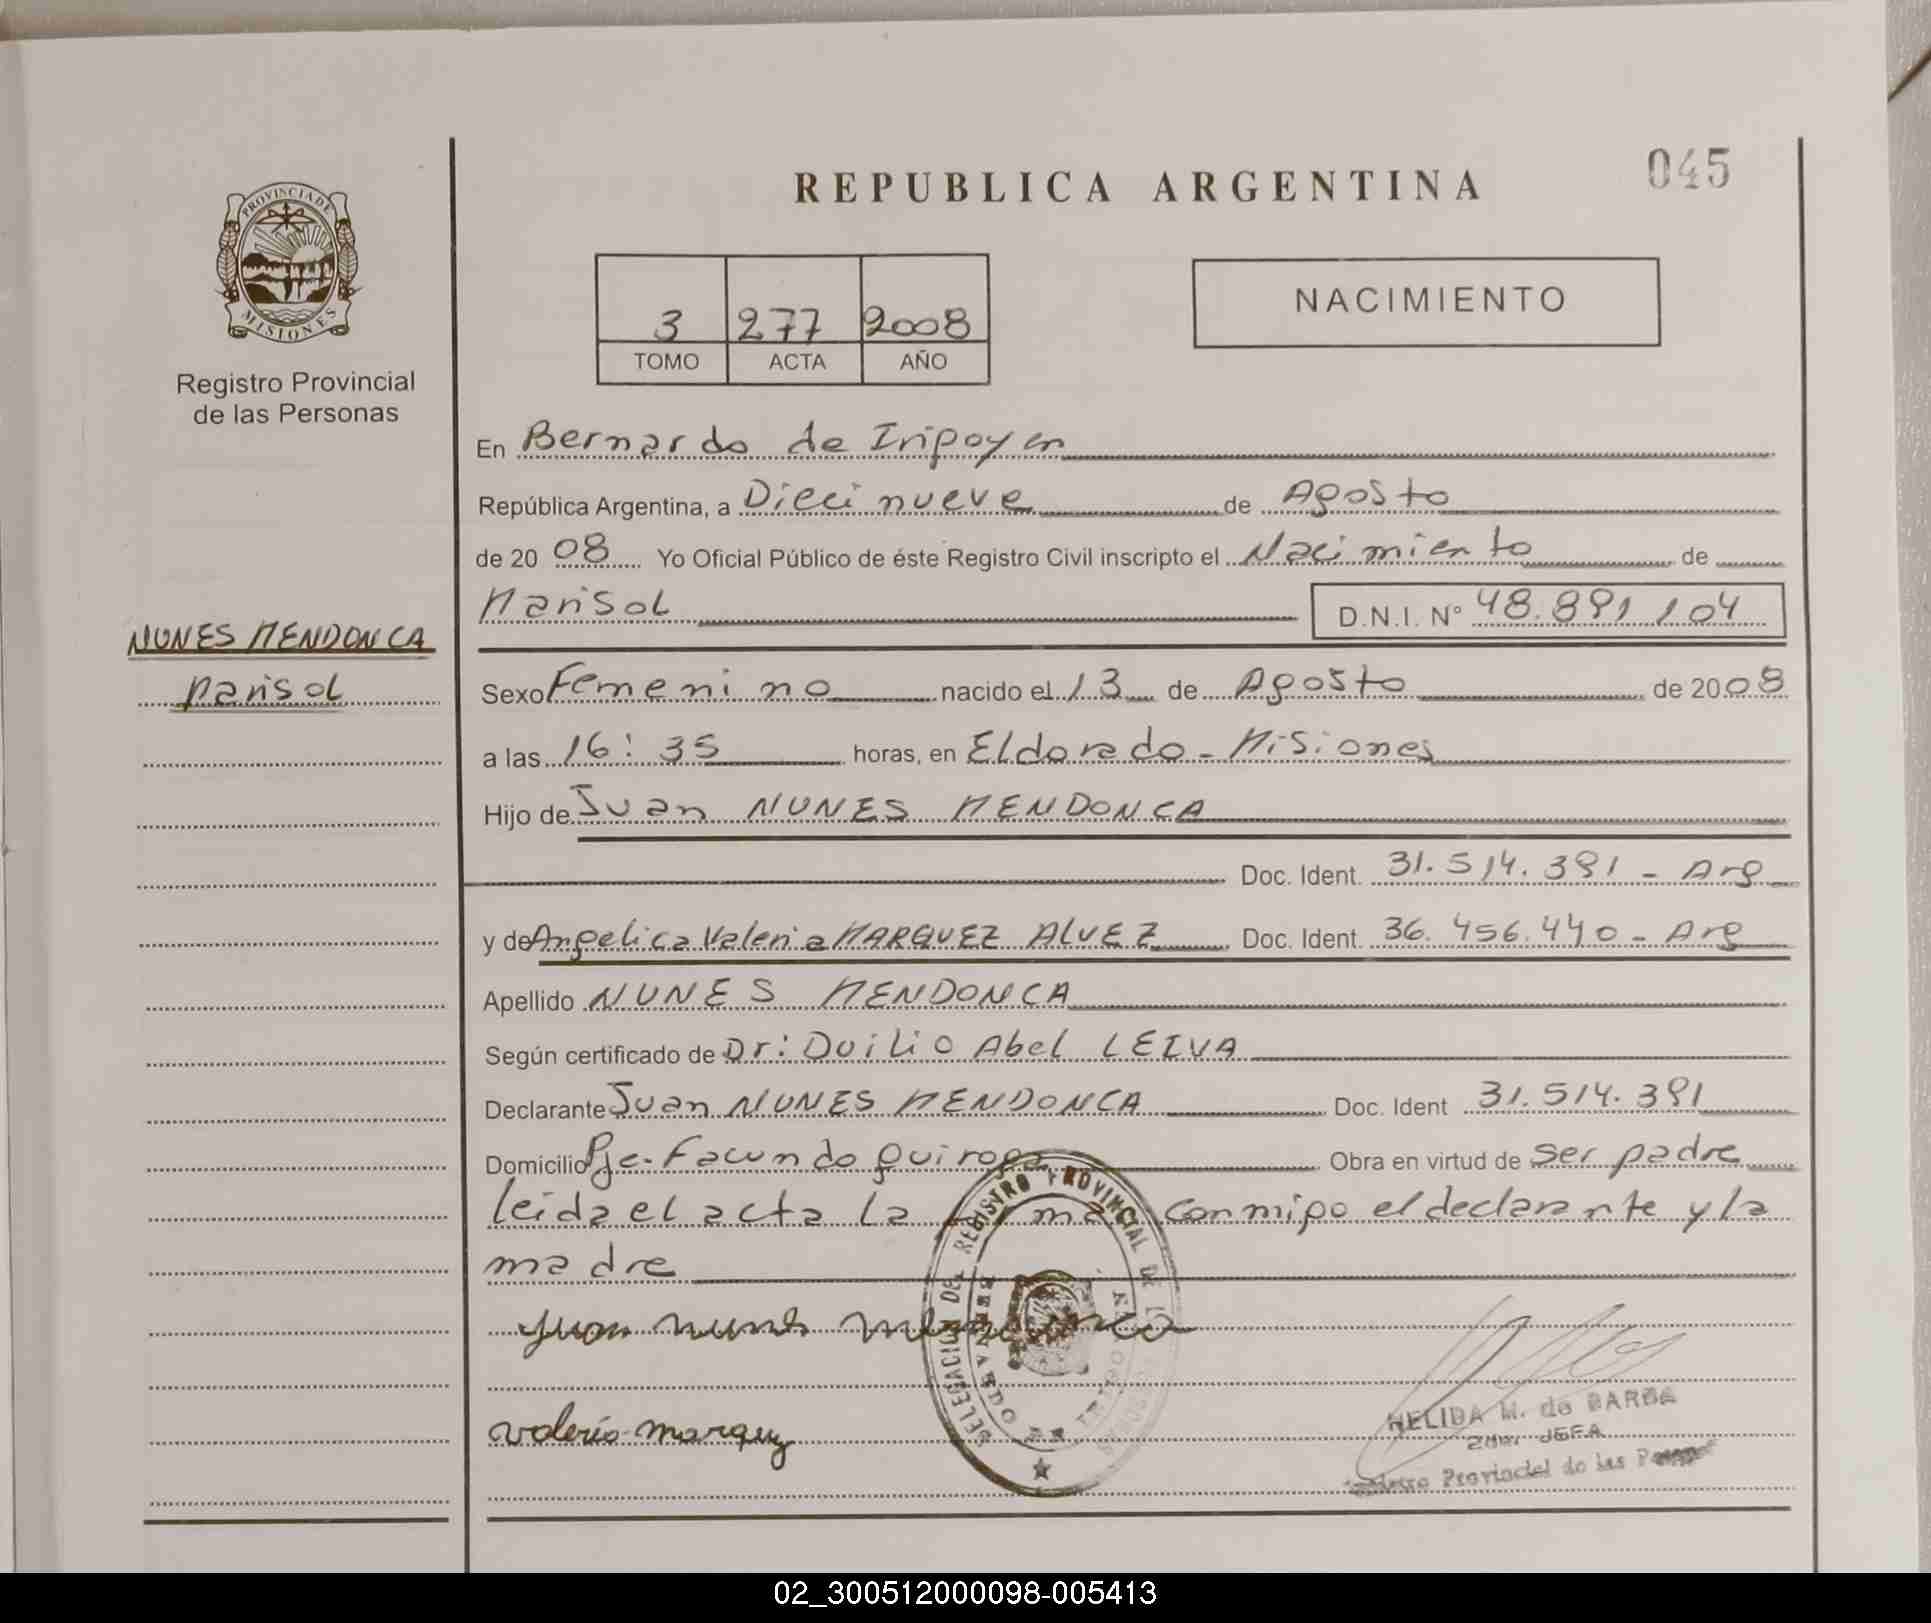 045
REPUBLICA ARGENTINA
PROVINCIA DE
MISIONES
Registro Provincial
de las Personas
3 277 2008
TOMO ACTA AÑO
NACIMIENTO
En Bernardo de Iripoyen
República Argentina, a Dieci nueve de Agosto
de 20 08 Yo Oficial Público de éste Registro Civil inscripto el Nacimiento de
Marisol D.N.I. Nº 48.891.104
NUNES MENDONCA
Marisol
Sexo Femenino nacido el 13 de Agosto de 2008
a las 16:35 horas, en Eldorado - Misiones
Hijo de Juan NUNES MENDONCA
Doc. Ident. 31.514.391 - Arg
y de Angelica Valeria MARQUEZ ALVEZ Doc. Ident. 36.456.440 - Arg
Apellido NUNES MENDONCA
Según certificado de Dr: Duilio Abel LEIVA
Declarante Juan NUNES MENDONCA Doc. Ident 31.514.391
Domicilio Pje. Facundo Quiroga Obra en virtud de ser padre
leida el acta la conmigo el declarante y la
madre
Juan nunes
valeria marquez
DELEGACION DEL REGISTRO PROVINCIAL DE
HELIDA M. de BARBA
2da. JEFA
Registro Provincial de las
02_300512000098-005413